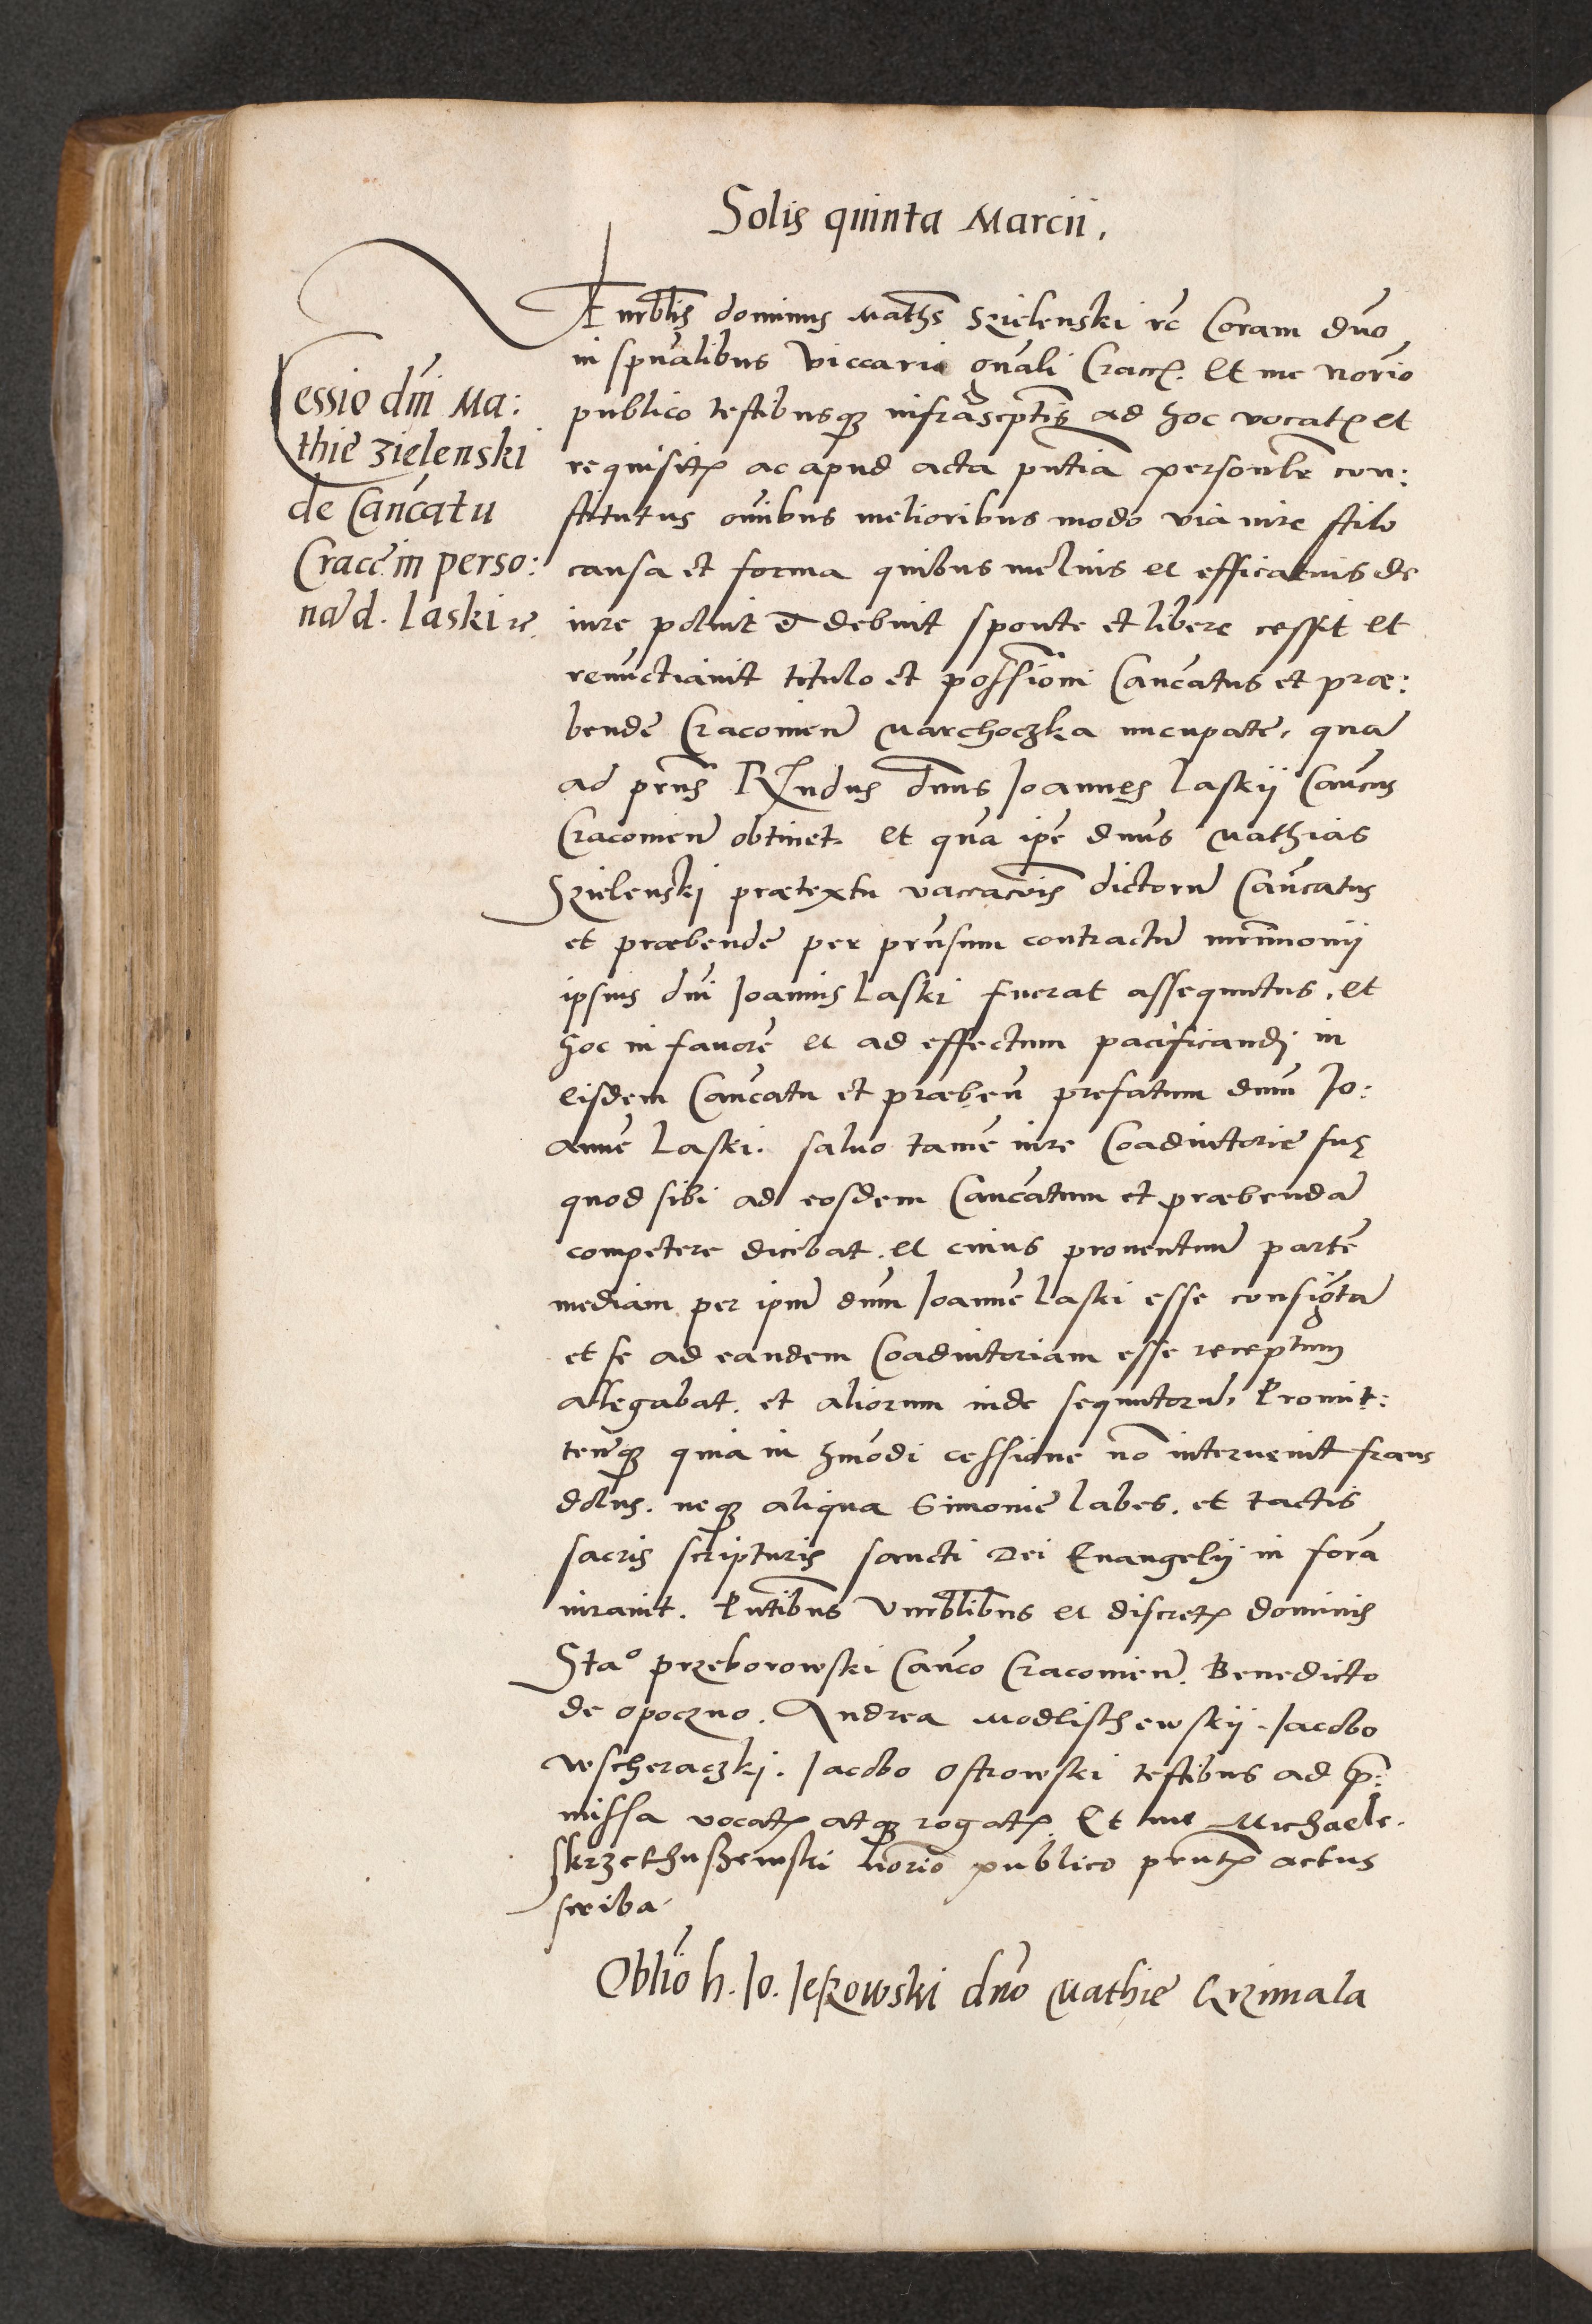 Solis quinta Marcii.
Cessio dni Ma:
thie Zielenski
de Cancatu
Cracē in perso:
nā d. Laski rc.
Vnrblis dominus Maths Szielenski rc Coram dno
in spualibus viccario gnali Cracꝭ. Et me norio
publico testibusqꝫ infrascptis ad hoc vocatꝭ et
requisitꝭ ac apud acta pntia personlr con:
stitutus omibus melioribus modo via iure stilo
causa et forma quibus melius et efficatius de
iure potuit et debuit sponte et libere cessit et
renunctiauit titulo et possioni Cancatus et præ:
bende Cracouien̄ Marchoczka nuncupate, quā
ad prns Rndus dnus Joannes Laskij Cancus
Cracouien̄ obtinet. et quā ipe dnus Mathias
Szielenski prætextu vaccacois dictorū Cancatus
et præbende per prnsum contractū mrimonij
ipsius dni Joannis Laski fuerat assequutus, et
hoc in fauorē et ad effectum pacificandj in
eisdem Cancatu et præben̄ prefatum dnm Jo:
annē Laski. saluo tamē iure Coadiutorie suę
quod sibi ad eosdem Cancatum et præbendā
competere dicebat. et cuius prouentuū partē
mediam per ipm dnm Joannē Laski esse consigtā
et se ad eandem Coadiutoriam esse receptum
allegabat. et aliorum inde sequutorū, Promit:
tenqꝫ quia in hmodi cessione nō interuenit fraus
dolus. neqꝫ aliqua Simonie labes. et tactis
sacris scripturis sancti Dei Euangelij in forā
iurauit. Pntibus Vnrblibus et discretꝭ dominis
Sta° Przeborowski Canco Cracouien̄. Benedicto
de Opoczno. Andrea Modlischewskij. Jacobo
Wscheraczkj. Jacobo Ostrowski testibus ad p̄:
missa vocatꝭ atqꝫ rogatꝭ. Et me Michaele
Skrzethuszewski norio publico prntꝭ actus
scriba.
Oblio h. Jo. Jeżowski dno Mathie Krzimala